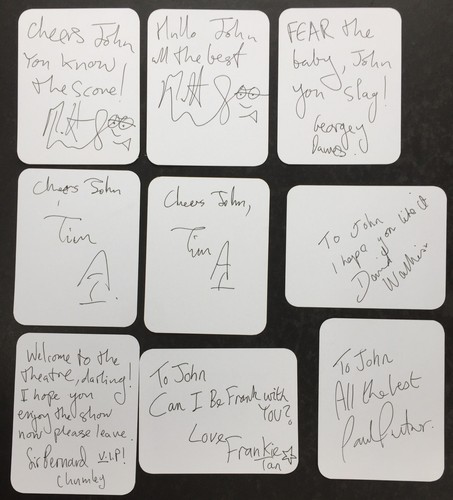 Cheers John
You know
the score!
Matt
Hullo John
all the best
Matt
FEAR the
baby, John
you slag!
Georgey
Dawes.
Cheers John
Tim
Cheers John,
Tim
To John
I hope you like it
David
Walliams
Welcome to the
theatre, darling!
I hope you
enjoy the show
now please leave.
Sir Bernard V.I.P!
Chumley
To John
Can I Be Frank with
YOU?
Love
Frankie
Tan
To John
All the best
Paul Putner.